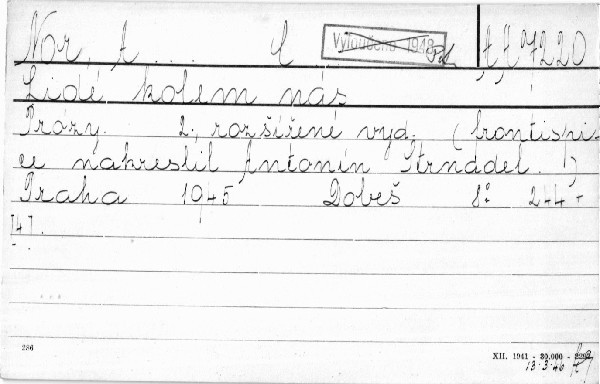 Nor, A.... C Vyloučeno 1948 AA 7220
Lidé kolem nás
Prózy. 2., rozšířené vyd. (frontispi-
ce nakreslil Antonín Strnadel.)
Praha 1945 Dobeš 8° 244 +
[4].
286
XII. 1941 - 30.000 - 3292
13.3.46